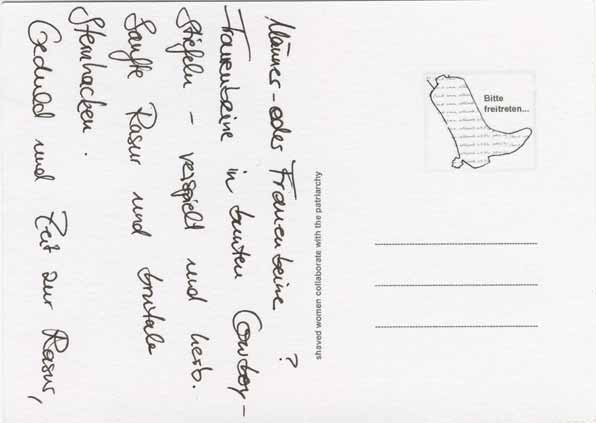 Männer- oder Frauenbeine?
Frauenbeine in bunten Cowboy-
stiefeln - verspielt und herb.
Sanfte Rasur und brutale
Sternhacken.
Geduld und Zeit zur Rasur,
shaved women collaborate with the patriarchy
Bitte
freitreten...